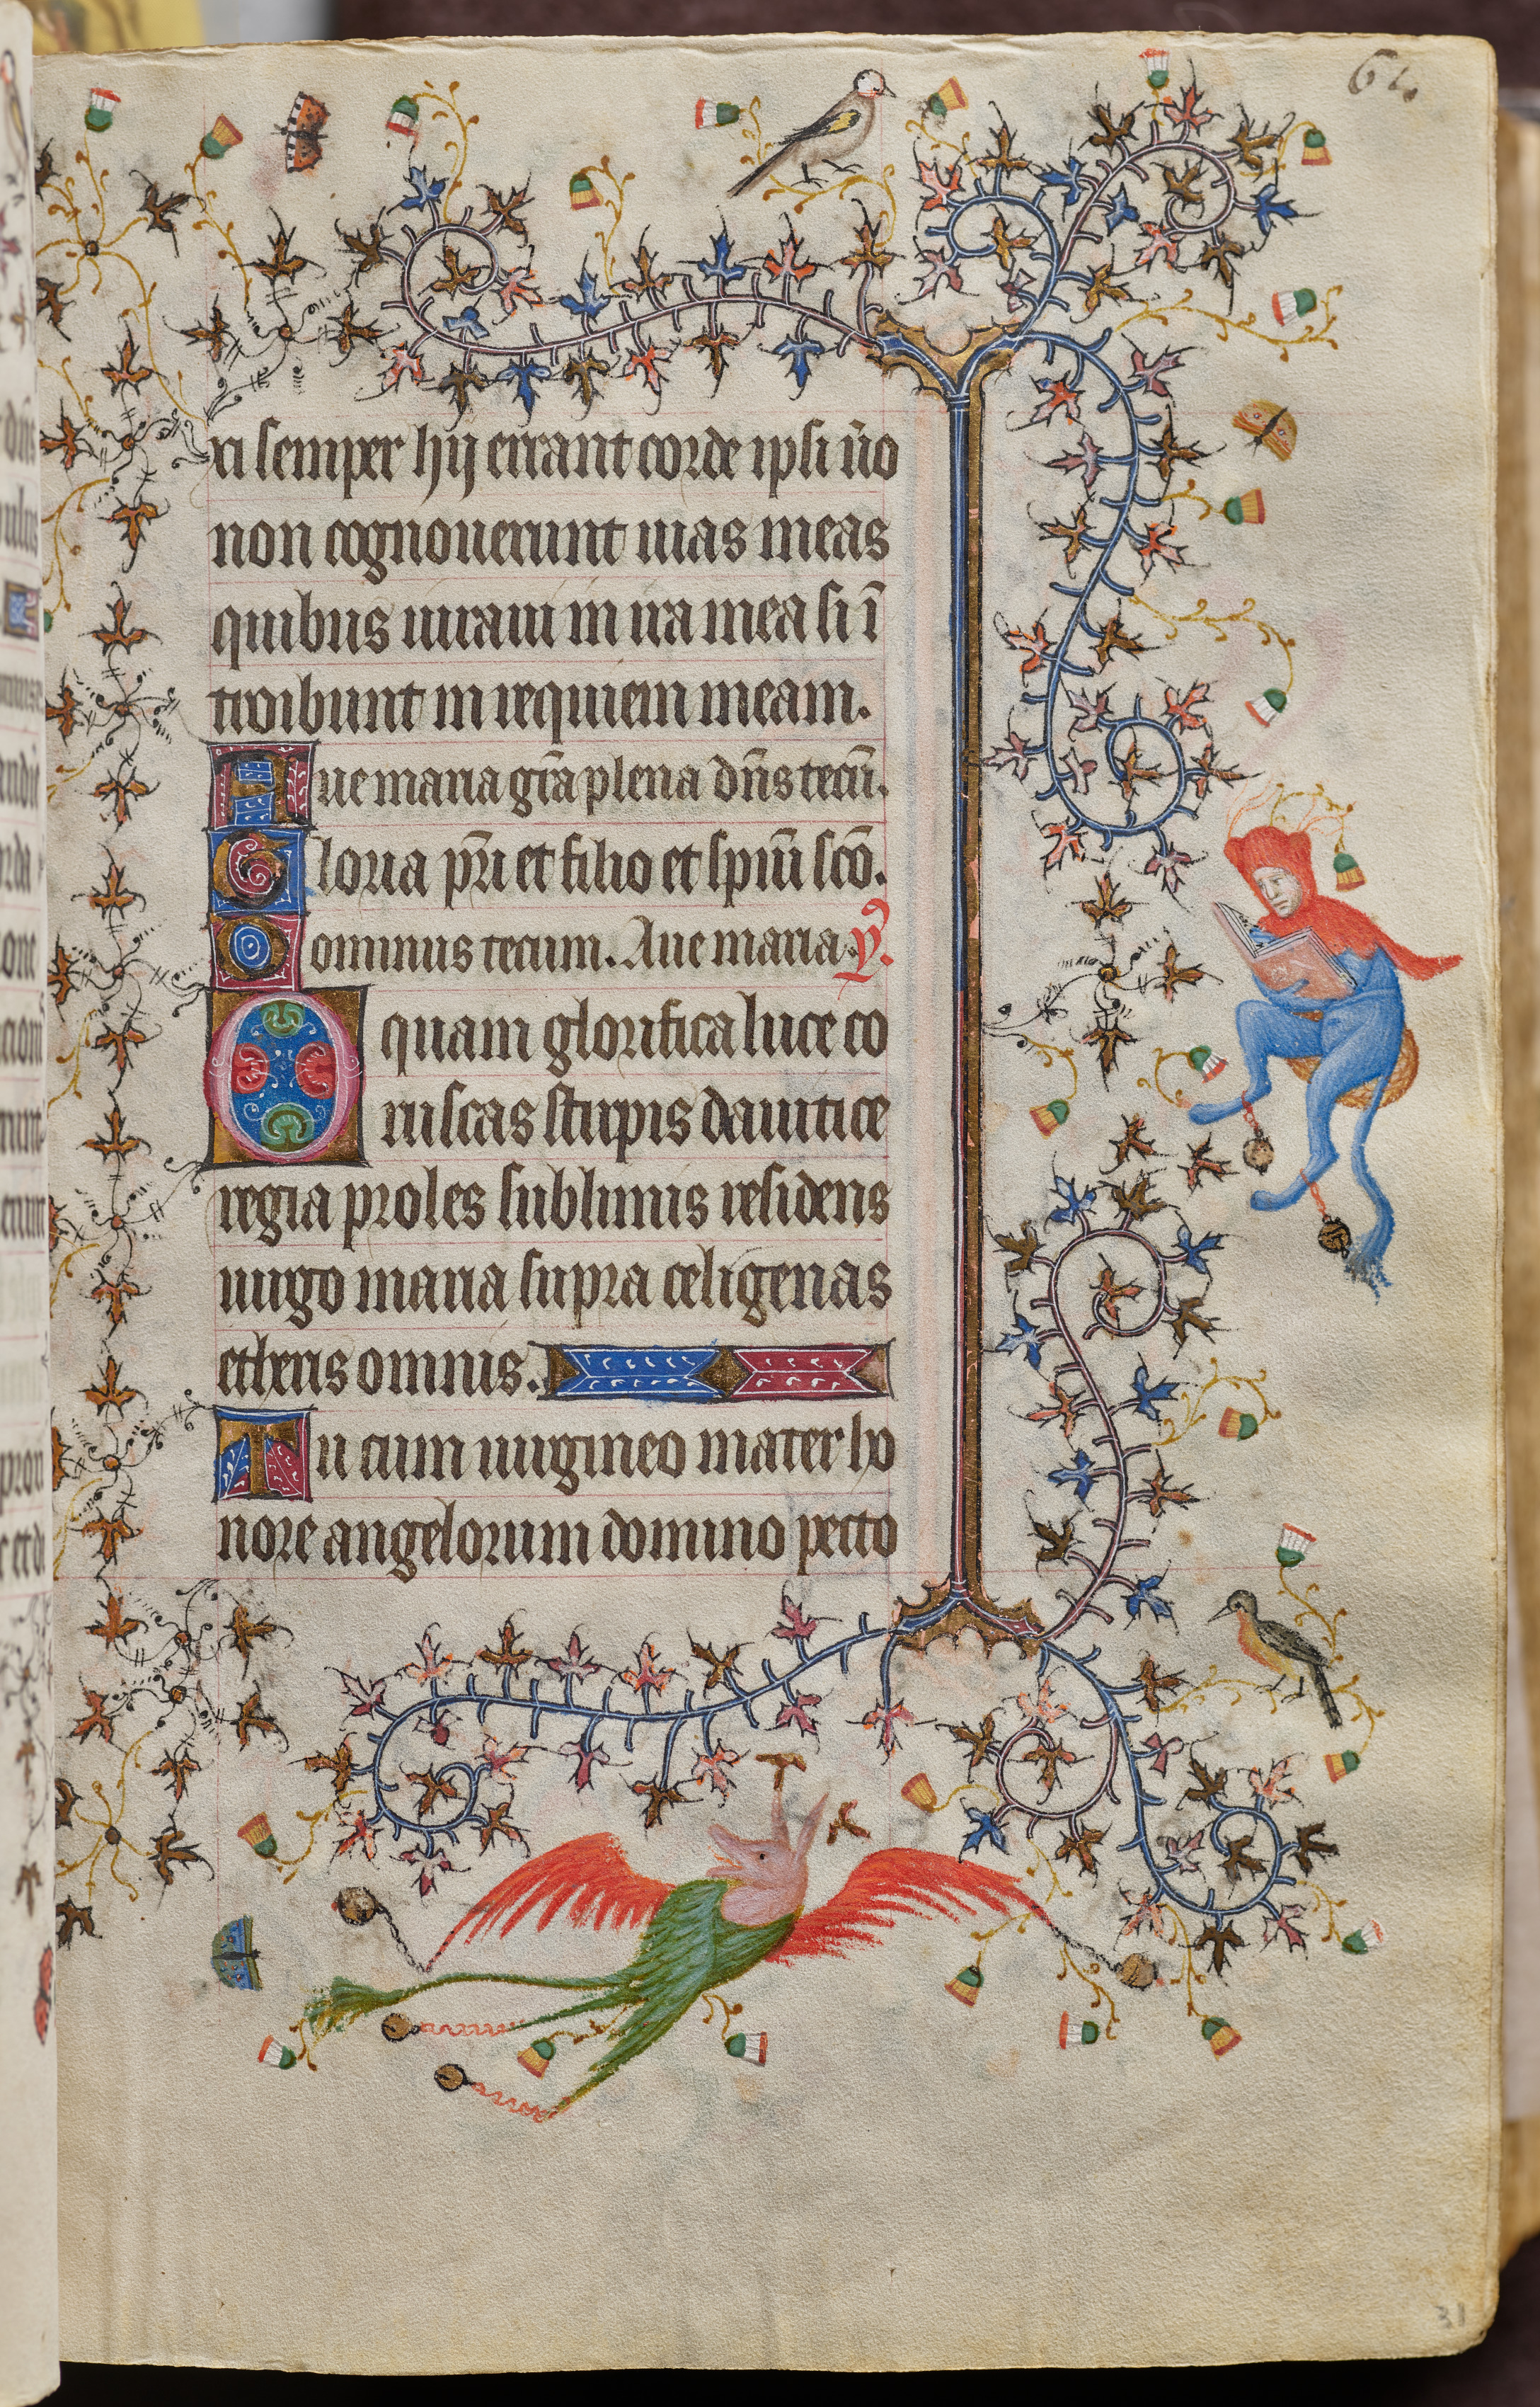 64.
xi semper hij errant corde ipsi ũo
non cognouerunt uias meas
quibus iuraui in ira mea si ī
troibunt in requiem meam.
Aue maria gr̄a plena dn̄s tecū.
Gloria pr̄i et filio et spiūi sc̄o.
Dominus tecum. Aue maria. ỹ.
O quam glorifica luce co
ruscas stirpis dauitice
regia proles sublimis residens
uirgo maria supra celigenas
etheris omnis.
Tu cum uirgineo mater ho
nore angelorum domino pecto
31